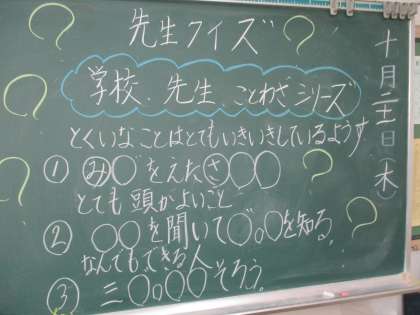 先生クイズ
学校、先生、ことわざシリーズ
とくいなことはとてもいきいきしているようす
① み○゛をえたさ○○
とても頭がよいこと
② ○○を聞いて○゛○を知る。
なんでもできる人
③ 三○゜○○そろう。
十月 日(木)